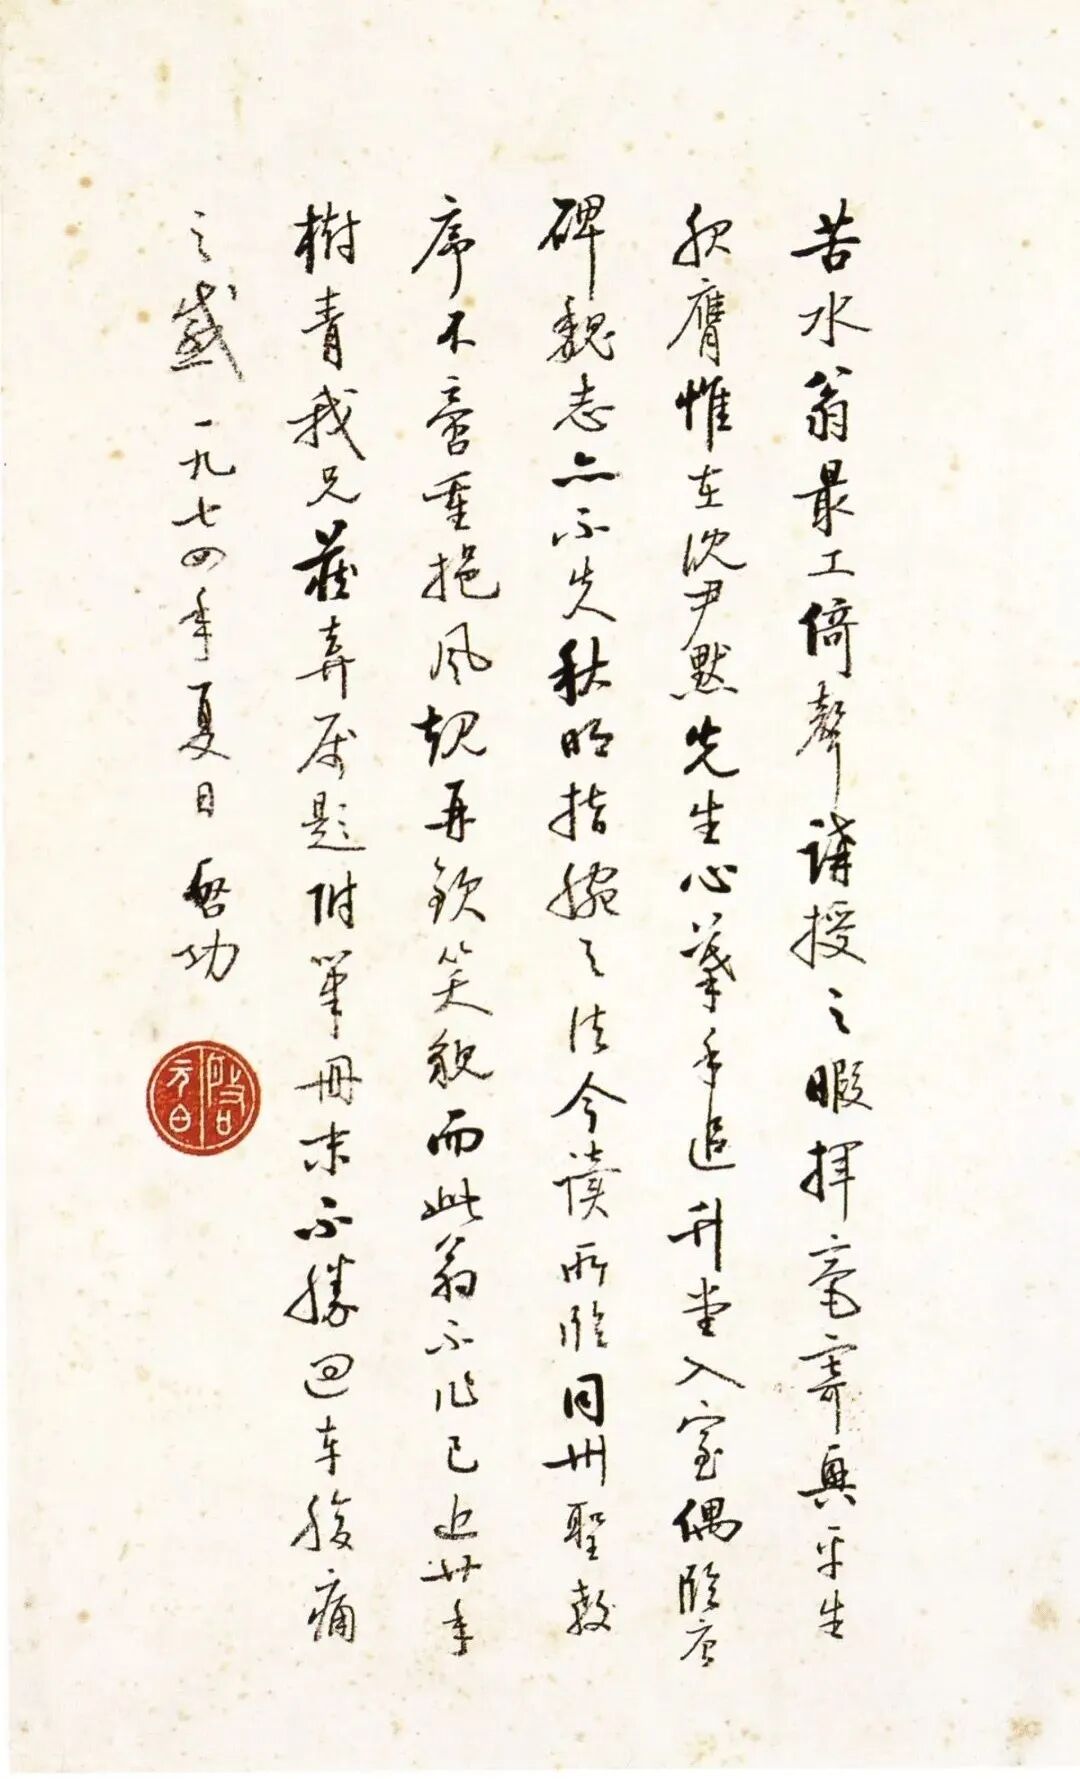 苦水翁最工倚聲講授之暇揮毫寄興平生
服膺惟在沈尹默先生心摹手追升堂入室偶臨唐
碑魏志亦不失秋明指腕之法今讀所臨同州聖教
序不啻重挹風規再欽笑貌而此翁不作已近廿年
樹青我兄藏弆屬題附筆冊末不勝迴車腹痛
之感 一九七四年夏日 啓功
啟元白